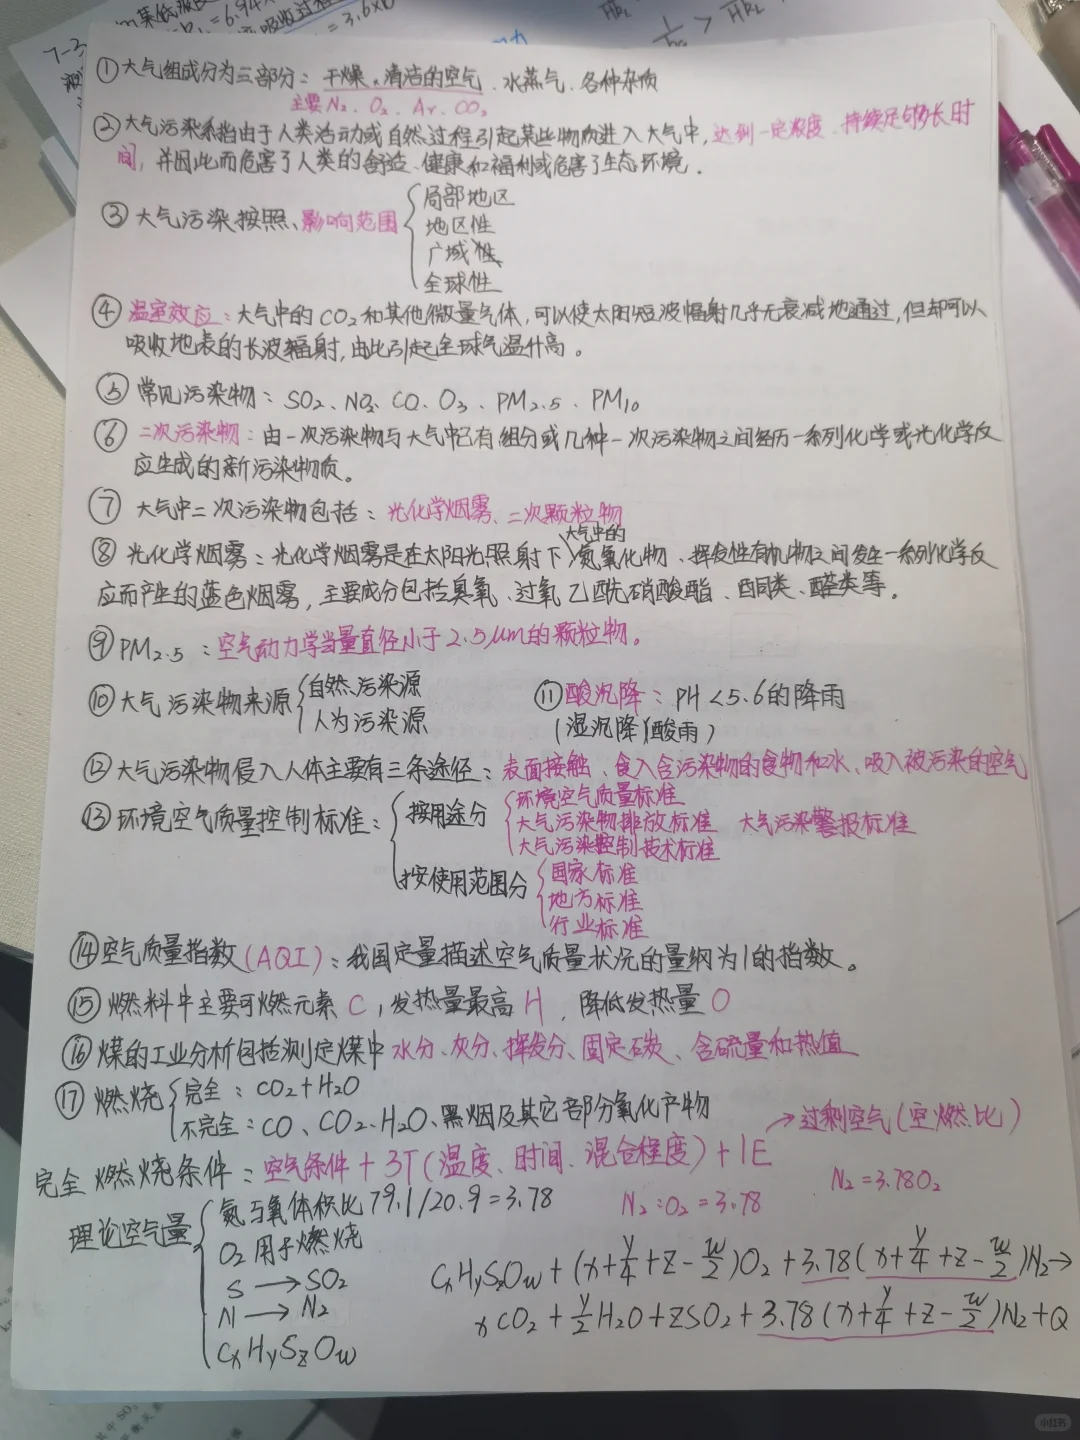 ①大气组成分为三部分：干燥、清洁的空气、水蒸气、各种杂质
主要N₂、O₂、Ar、CO₂
②大气污染系指由于人类活动或自然过程引起某些物质进入大气中，达到一定浓度、持续足够长时
间，并因此而危害了人类的舒适、健康和福利或危害了生态环境。
③大气污染按照、影响范围
局部地区
地区性
广域性
全球性
④温室效应：大气中的CO₂和其他微量气体，可以使太阳短波辐射几乎无衰减地通过，但却可以
吸收地表的长波辐射，由此引起全球气温升高。
⑤常见污染物：SO₂、NO₂、CO、O₃、PM₂.₅、PM₁₀
⑥二次污染物：由一次污染物与大气中已有组分或几种一次污染物之间经历一系列化学或光化学反
应生成的新污染物质。
⑦大气中二次污染物包括：光化学烟雾、二次颗粒物
⑧光化学烟雾：光化学烟雾是在太阳光照射下大气中的氮氧化物、挥发性有机物之间发生一系列化学反
应而产生的蓝色烟雾，主要成分包括臭氧、过氧乙酰硝酸酯、酮类、醛类等。
⑨PM₂.₅：空气动力学当量直径小于2.5μm的颗粒物。
⑩大气污染物来源
自然污染源
人为污染源
⑪酸沉降：PH<5.6的降雨
(湿沉降)(酸雨)
⑫大气污染物侵入人体主要有三条途径：表面接触、食入含污染物的食物和水、吸入被污染的空气
⑬环境空气质量控制标准：
按用途分
环境空气质量标准
大气污染物排放标准 大气污染警报标准
大气污染控制技术标准
按使用范围分
国家标准
地方标准
行业标准
⑭空气质量指数(AQI)：我国定量描述空气质量状况的量纲为1的指数。
⑮燃料中主要可燃元素C，发热量最高H，降低发热量O
⑯煤的工业分析包括测定煤中水分、灰分、挥发分、固定碳、含硫量和热值
⑰燃烧
完全：CO₂+H₂O
不完全：CO、CO₂、H₂O、黑烟及其它部分氧化产物
→过剩空气(空燃比)
完全燃烧条件：空气条件+3T(温度、时间、混合程度)+1E
N₂=3.78O₂
理论空气量
氮与氧体积比79.1/20.9=3.78
N₂:O₂=3.78
O₂用于燃烧
S→SO₂
N→N₂
CxHySzOw
CxHySzOw+(x+y/4+z-w/2)O₂+3.78(x+y/4+z-w/2)N₂→
xCO₂+y/2H₂O+zSO₂+3.78(x+y/4+z-w/2)N₂+Q
小红书